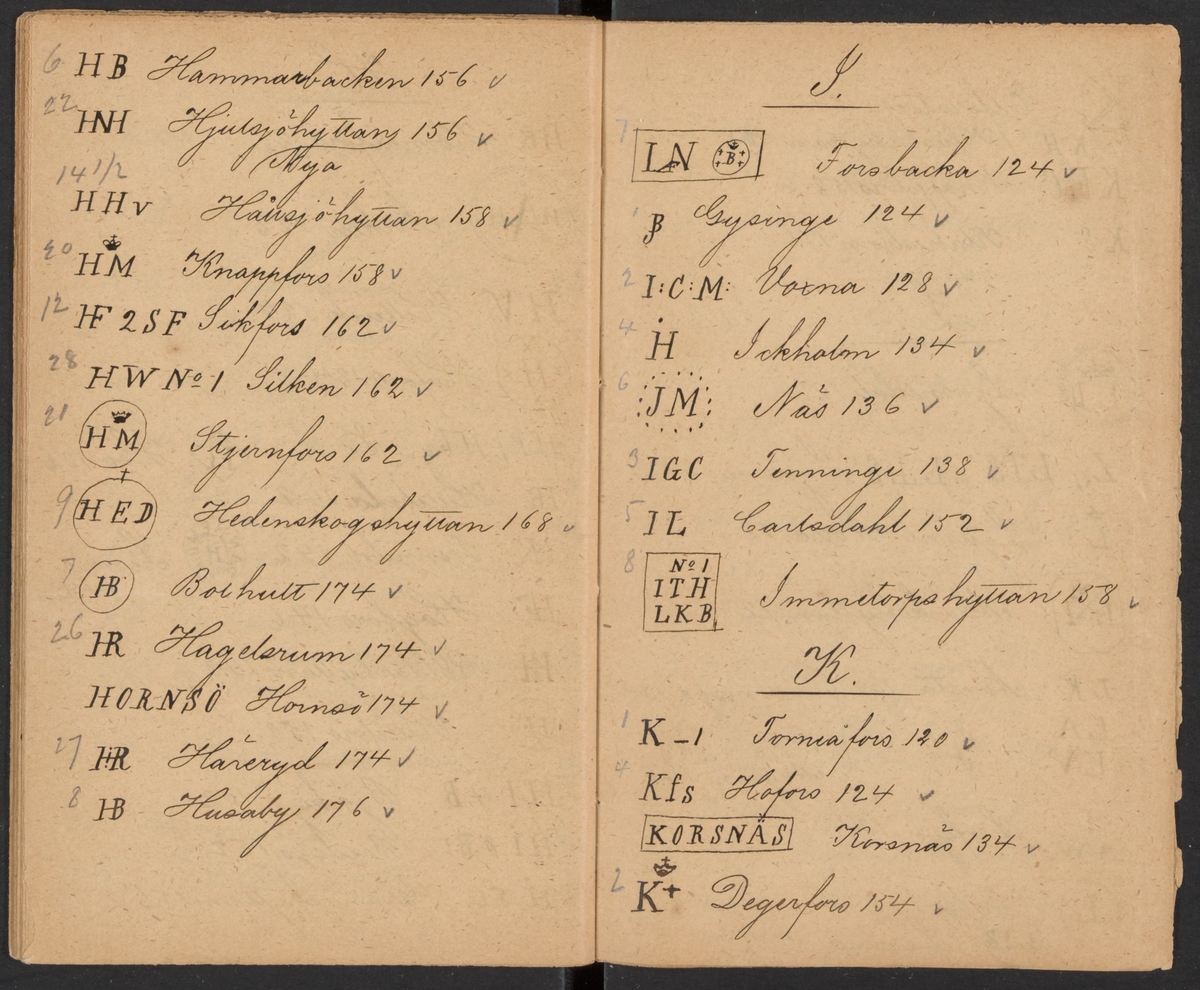 6 HB Hammarbacken 156 v
22 HNH Hjulsjöhyttan 156 v
Nya
14 1/2
HHv Hättsjöhyttan 158 v
20 HM Knappfors 158 v
12 HF 2 S F Sikfors 162 v
28 HW No 1 Silken 162 v
21 HM Stjernfors 162 v
9 HED Hedenskogshyttan 168 v
7 HB Bohult 174 v
26 HR Hagelsrum 174 v
HORNSÖ Hornsö 174 v
27 HR Häreryd 174 v
8 HB Husaby 176 v
I.
7 LN B Forsbacka 124 v
1 B Gysinge 124 v
2 I:C:M: Voxna 128 v
4 H Ickholm 134 v
6 JM Näs 136 v
3 IGC Tenninge 138 v
5 IL Carlsdahl 152 v
8 No 1
ITH Immetorpshyttan 158 v
LKB
K.
1 K–1 Torneåfors 120 v
4 Kfs Hofors 124 v
KORSNÄS Korsnäs 134 v
2 K+ Degerfors 154 v